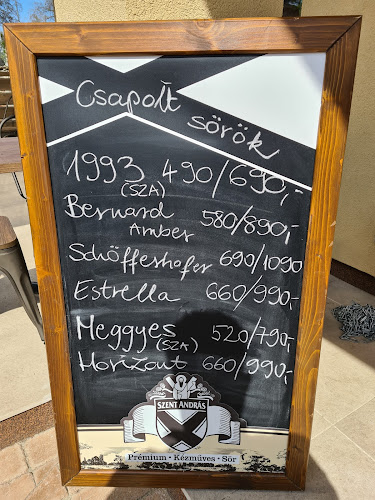 Csapolt sörök
1993 490/690,-
(SZA)
Bernard 580/890,-
Amber
Schöfferhofer 690/1090
Estrella 660/990,-
Meggyes 520/790,-
(SZA)
Horizont 660/990,-
SZENT ANDRÁS
Prémium • Kézműves • Sör